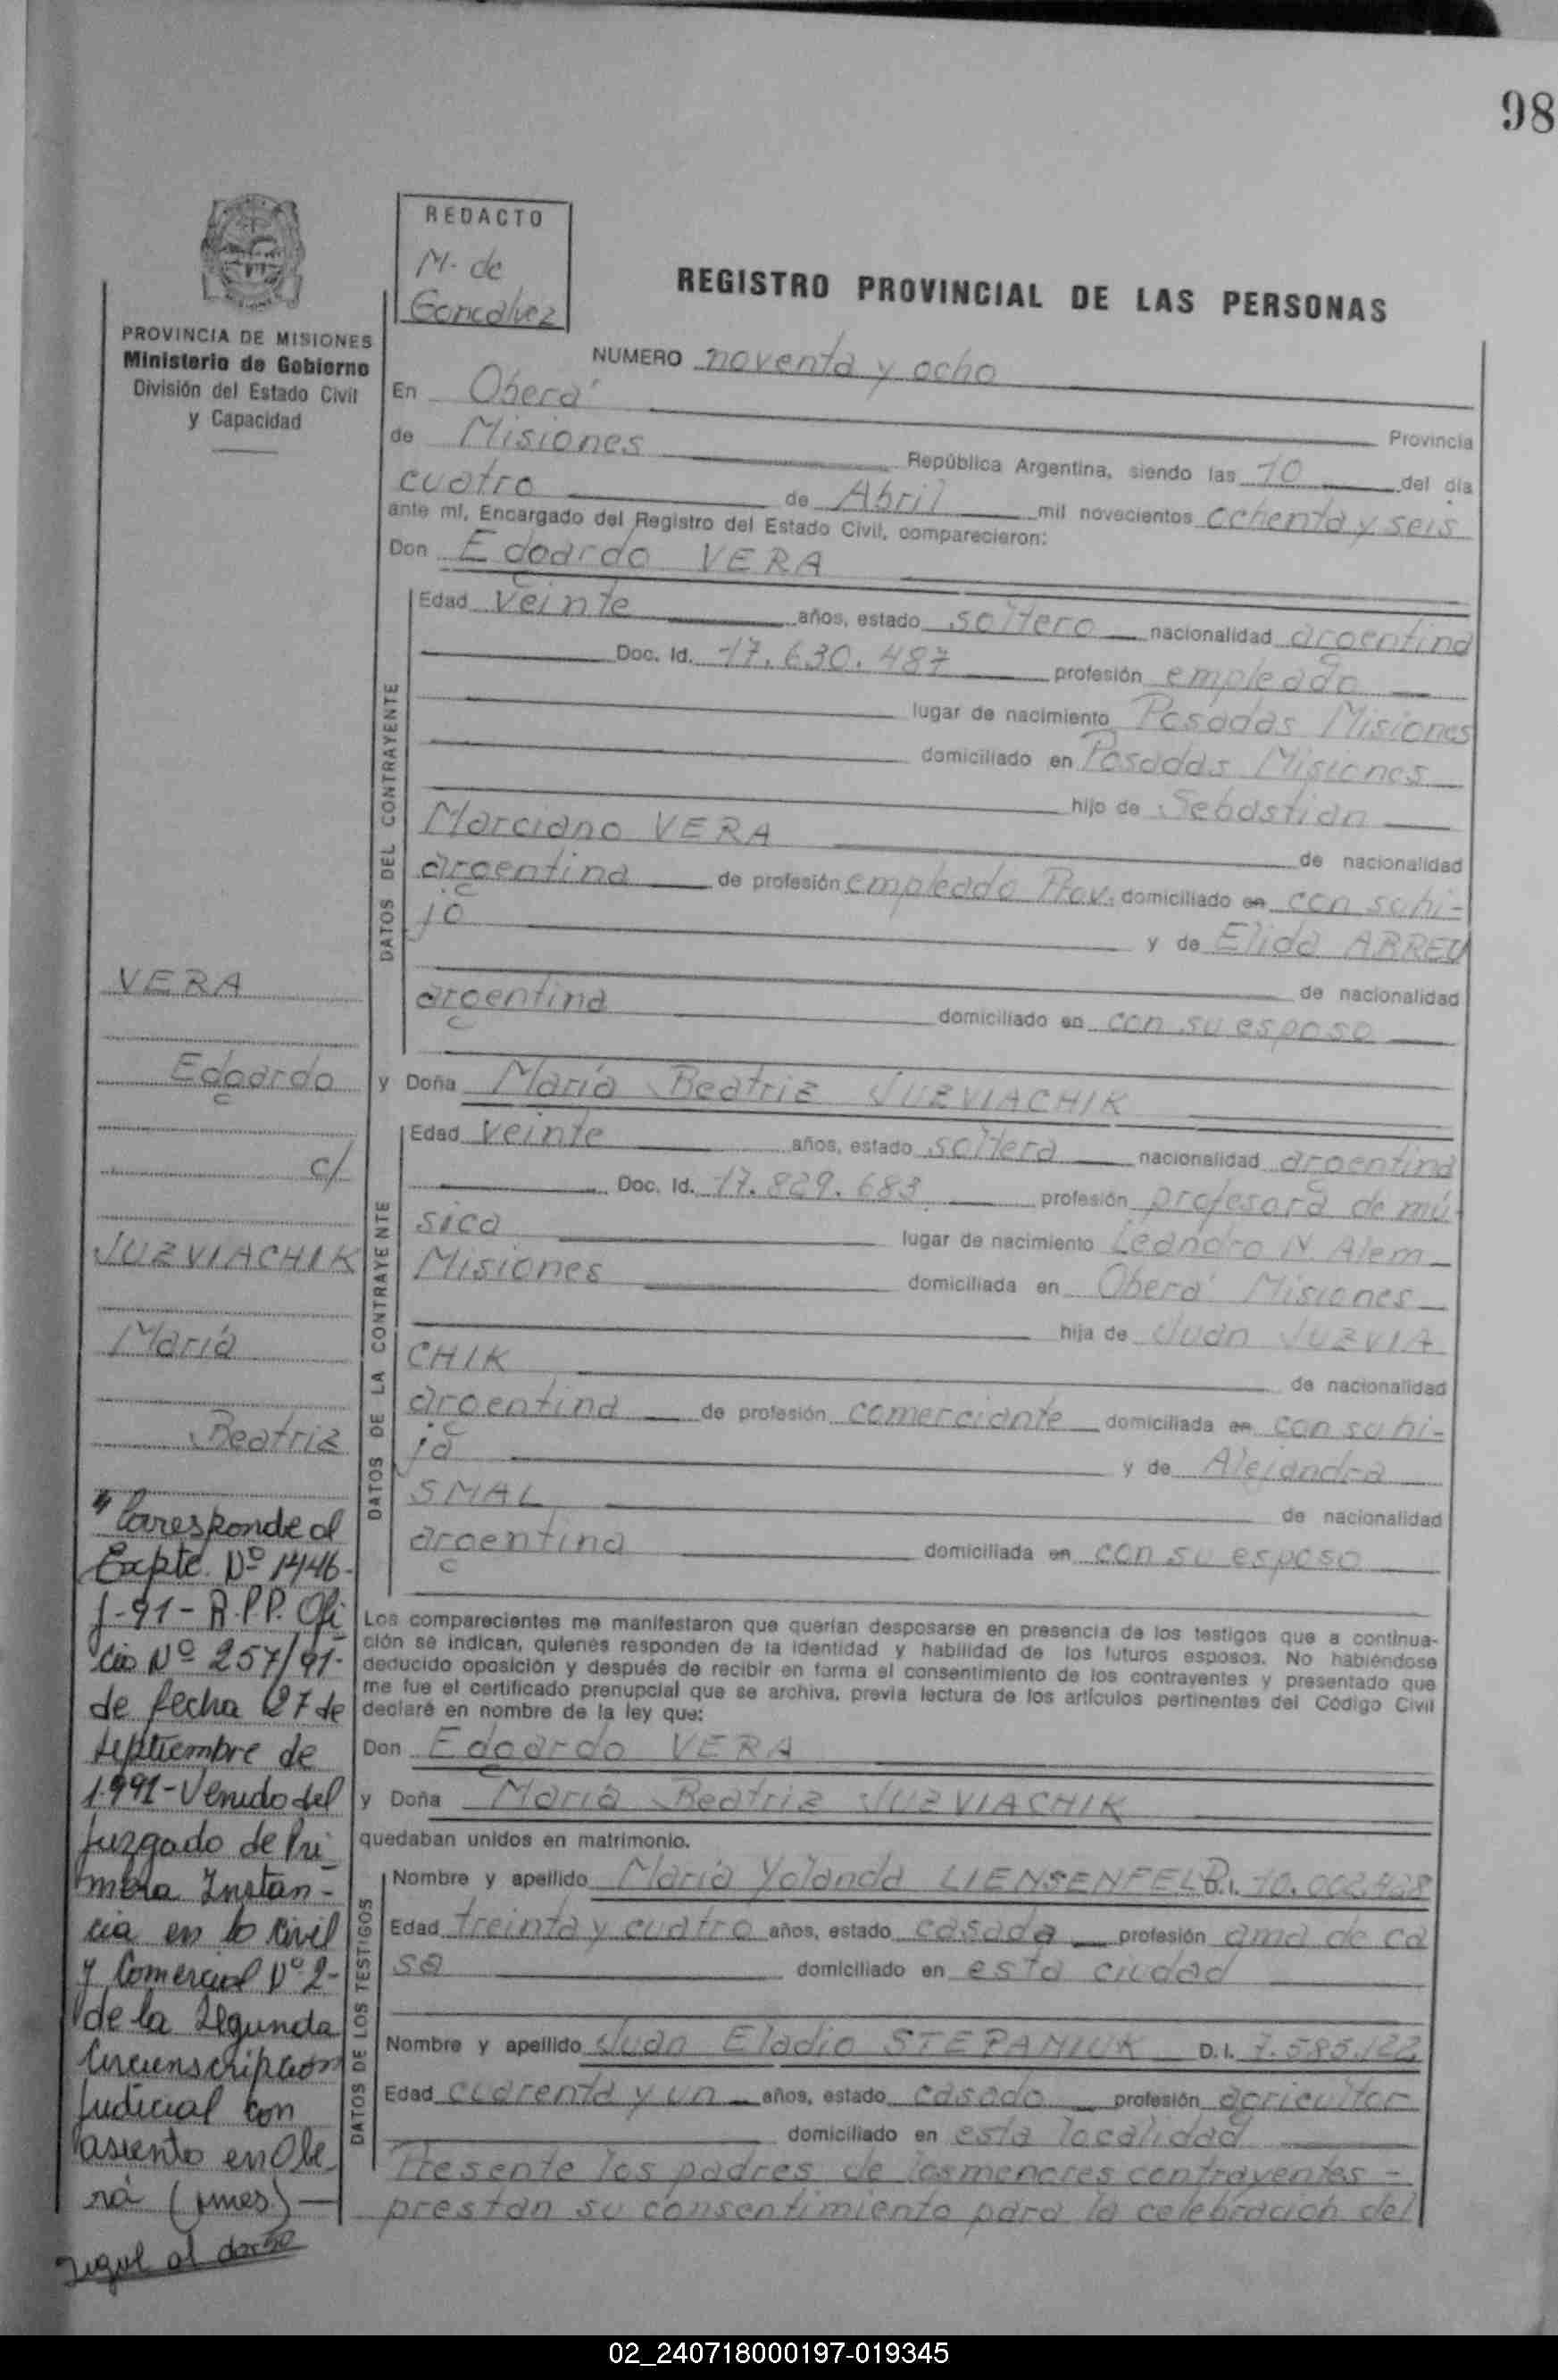 98
REDACTO
M. de
Goncalvez
PROVINCIA DE MISIONES
Ministerio de Gobierno
División del Estado Civil
y Capacidad
REGISTRO PROVINCIAL DE LAS PERSONAS
NUMERO noventa y ocho
En Oberá
Provincia
de Misiones República Argentina, siendo las 10 del día
cuatro de Abril mil novecientos ochenta y seis
ante mí, Encargado del Registro del Estado Civil, comparecieron:
Don Edgardo VERA
DATOS DEL CONTRAYENTE
Edad veinte años, estado soltero nacionalidad argentina
Doc. Id. 17.630.487 profesión empleado
lugar de nacimiento Posadas Misiones
domiciliado en Posadas Misiones
hijo de Sebastian
Marciano VERA de nacionalidad
argentina de profesión empleado Prov. domiciliado en con su hi-
jo y de Elida ABREU
de nacionalidad
argentina domiciliado en con su esposo
y Doña María Beatriz JUZVIACHIK
DATOS DE LA CONTRAYENTE
Edad veinte años, estado soltera nacionalidad argentina
Doc. Id. 17.829.683 profesión profesora de mú-
sica lugar de nacimiento Leandro N. Alem
Misiones domiciliada en Oberá Misiones
hija de Juan JUZVIA
CHIK de nacionalidad
argentina de profesión comerciante domiciliada en con su hi-
ja y de Alejandra
SMAL de nacionalidad
argentina domiciliada en con su esposo
Los comparecientes me manifestaron que querían desposarse en presencia de los testigos que a continua-
ción se indican, quienes responden de la identidad y habilidad de los futuros esposos. No habiéndose
deducido oposición y después de recibir en forma el consentimiento de los contrayentes y presentado que
me fue el certificado prenupcial que se archiva, previa lectura de los artículos pertinentes del Código Civil
declaré en nombre de la ley que:
Don Edgardo VERA
y Doña María Beatriz JUZVIACHIK
quedaban unidos en matrimonio.
DATOS DE LOS TESTIGOS
Nombre y apellido María Yolanda LIENSENFELD D.I. 10.002.428
Edad treinta y cuatro años, estado casada profesión ama de ca
sa domiciliado en esta ciudad
Nombre y apellido Juan Eladio STEPANIUK D.I. 7.585.122
Edad cuarenta y un años, estado casado profesión agricultor
domiciliado en esta localidad
Presente los padres de los menores contrayentes -
prestan su consentimiento para la celebración del
VERA
Edgardo
c/
JUZVIACHIK
María
Beatriz
" Corresponde al
Expte. Nº 1446-
J-91- R.P.P. Ofi
cio Nº 257/91-
de fecha 27 de
septiembre de
1991- Venido del
Juzgado de Pri_
mera Instan-
cia en lo Civil
y Comercial Nº 2-
de la Segunda
Circunscripción
Judicial con
asiento en Obe_
rá (Mnes.) —
Sigue al dorso
02_240718000197-019345